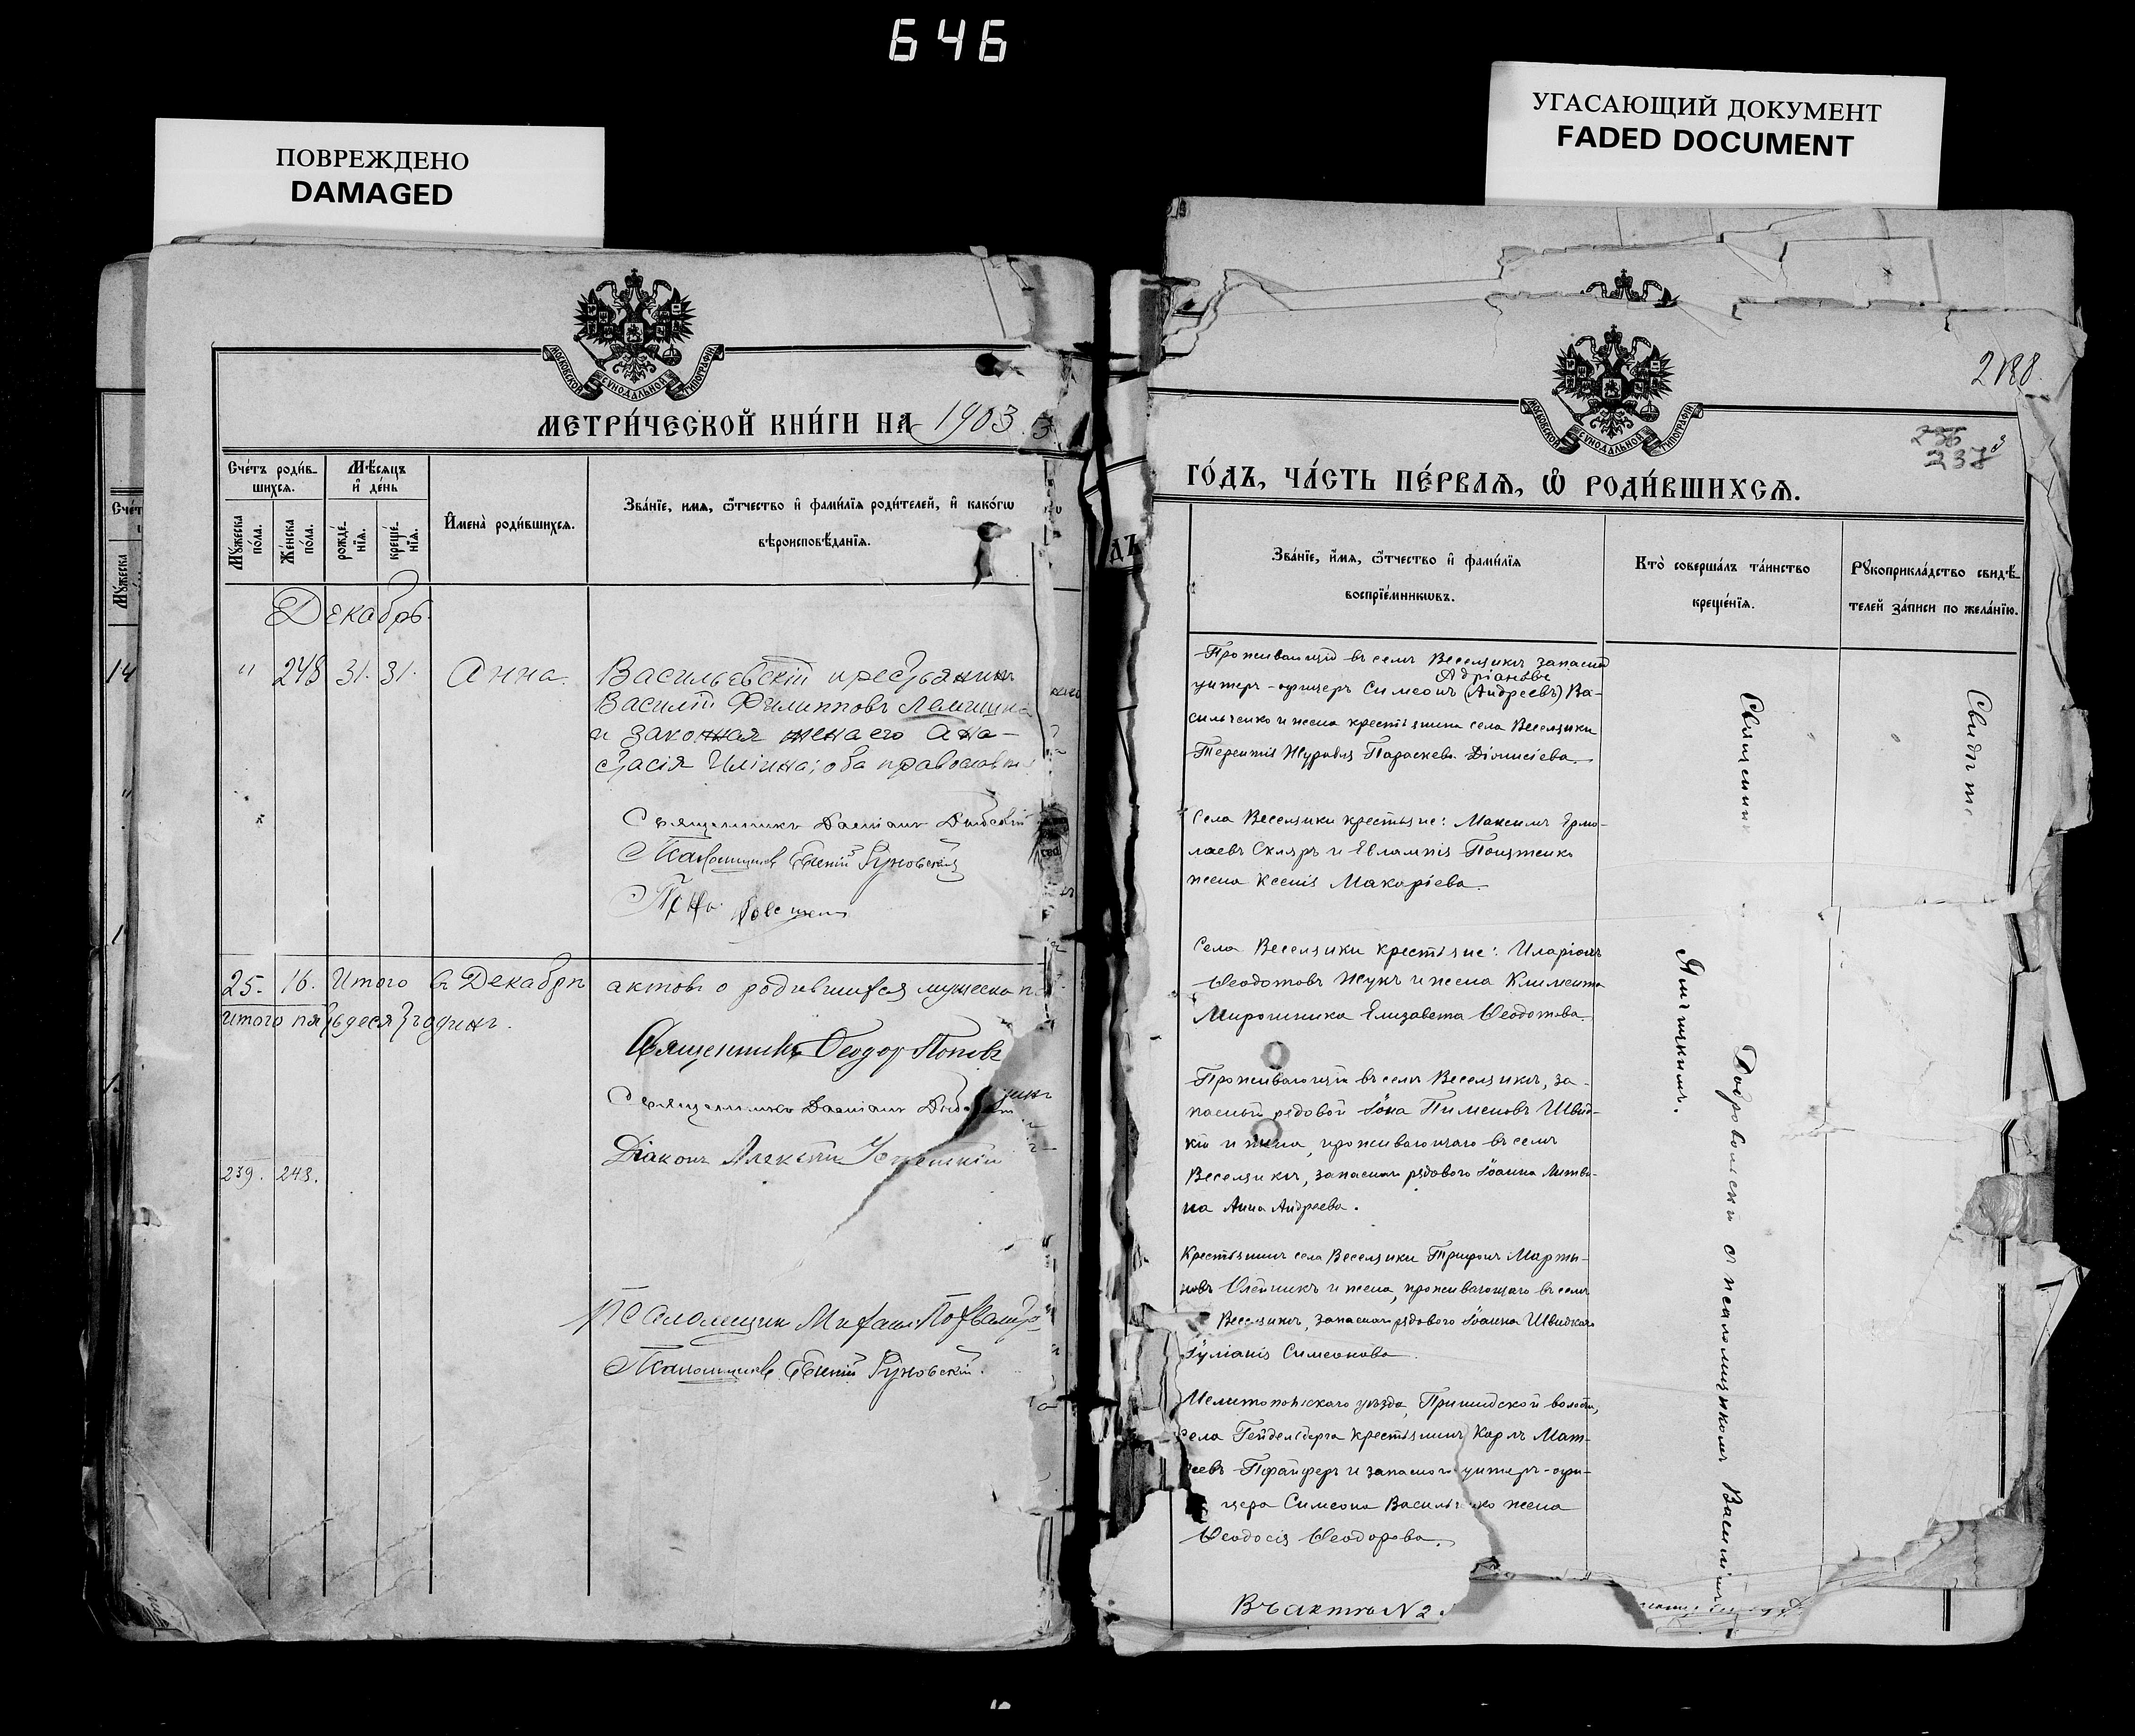 646
ПОВРЕЖДЕНО
DAMAGED
УГАСАЮЩИЙ ДОКУМЕНТ
FADED DOCUMENT
МОСКОВСКОЙ СУНОДАЛЬНОЙ ТИПОГРАФІИ
МЕТРИ́ЧЕСКОЙ КНИ́ГИ НА 1903
Сче́тъ роди́в-
шихся.
Мѣсяцъ
и де́нь
Мꙋ́жеска
по́ла.
Же́нска
по́ла.
рожде́-
нїя.
креще́-
нїя.
Имена̀ роди́вшихся.
Зва́нїе, имя, ѻ҆́тчество и фами́лїя роди́телей, и како́гѡ
вѣроисповѣ́данїя.
Декабрь.
" 248 31. 31. Анна.
Васильевскій крестьянинъ
Василій Филипповъ
и законная жена его Ана-
стасія Иліина; оба православн
Священникъ Даміанъ
Псаломщикъ Евгеній
25. 16. Итого въ Декабрѣ актовъ о родившихся мужеска
итого пятьдесятъ одинъ.
Священникъ Ѳеодоръ Поповъ
Священникъ Даміанъ
Діаконъ Алексѣй
239. 248.
Псаломщикъ Михаилъ
Псаломщикъ Евгеній
МОСКОВСКОЙ СУНОДАЛЬНОЙ ТИПОГРАФІИ
237
ГО́ДЪ, ЧА́СТЬ ПЕ́РВАЯ, Ѡ҆ РОДИ́ВШИХСЯ.
Зва́нїе, и́мя, ѻ҆́тчество и фами́лїя
воспрїе́мникѡвъ.
Кто̀ соверша́лъ та́инство
креще́нїя.
Рꙋкоприкла́дство свидѣ́-
телей за́писи по жела́нїю.
Проживающій въ селѣ Веселянкѣ запасный
Адріановъ
унтеръ-офицеръ Симеонъ (Андреевъ) Ва-
сильченко и жена крестьянина села Веселянки
Терентія Журавля Параскева Діонисіева.
Села Веселянки крестьяне: Максимъ Ермо-
лаевъ Скляръ и Евлампія
жена Ксенія Макаріева.
Села Веселянки крестьяне: Иларіонъ
Ѳеодотовъ Жукъ и жена Климента
Мирошника Елизавета Ѳеодотова.
Проживающій въ селѣ Веселянкѣ, за-
пасный рядовой Іона Пименовъ Швид-
кій и жена, проживающаго въ селѣ
Веселянкѣ, запаснаго рядового Іоанна Литви-
на Анна Андреева.
Крестьянинъ села Веселянки Трифонъ Марты-
новъ Олейникъ и жена, проживающаго въ селѣ
Веселянкѣ, запаснаго рядового Іоанна Швидкаго
Іуліанія Симеонова.
Мелитопольскаго уѣзда, Пришибской волости,
села Гейдельберга крестьянинъ Карлъ Мат-
ѳеевъ Пфайферъ и запасного унтеръ-офи-
цера Симеона Васильченко жена
Ѳеодосія Ѳеодорова.
Въ актѣ N 2.
Священник
Добровольскій съ псаломщикомъ Василіемъ
Ямпицкимъ.